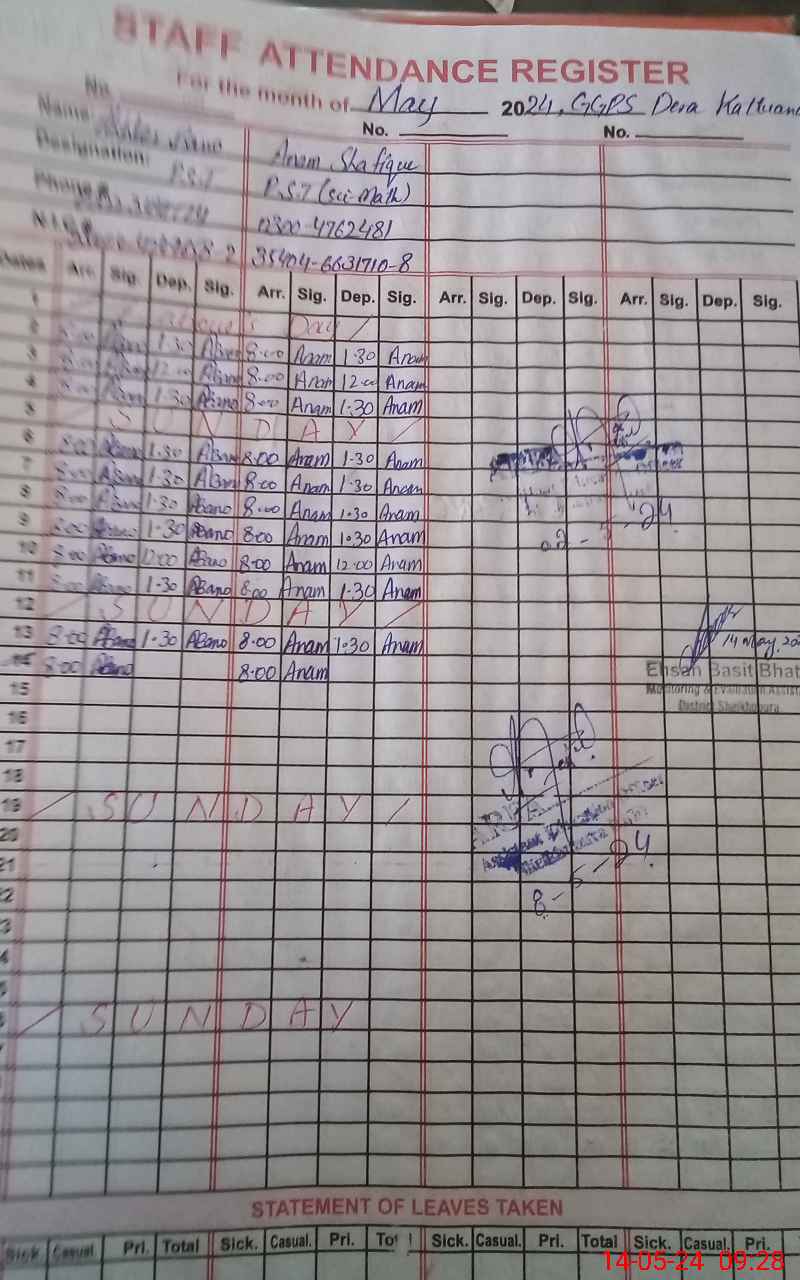 STAFF ATTENDANCE REGISTER
No. For the month of May 2024, GGPS Dera
No. No.
Name Anam Shafique
Designation: P.S.T P.S.T (Sci-Math)
Phone 0300-4762481
35404-6631710-8
Dates Arr. Sig. Dep. Sig. Arr. Sig. Dep. Sig. Arr. Sig. Dep. Sig. Arr. Sig. Dep. Sig.
1 Day
2 8:00 1:30 8:00 Anam 1:30 Anam
3 8:00 12:00 8:00 Anam 12:00 Anam
4 8:00 1:30 ABano 8:00 Anam 1:30 Anam
5 SUNDAY
6 8:00 ABano 1:30 ABano 8:00 Anam 1:30 Anam
7 8:00 ABano 1:30 ABano 8:00 Anam 1:30 Anam
8 8:00 ABano 1:30 ABano 8:00 Anam 1:30 Anam
9 8:00 ABano 1:30 ABano 8:00 Anam 1:30 Anam
10 8:00 ABano 12:00 ABano 8:00 Anam 12:00 Anam
11 8:00 ABano 1:30 ABano 8:00 Anam 1:30 Anam
12 SUNDAY
13 8:00 ABano 1:30 ABano 8:00 Anam 1:30 Anam
14 May, 20
14 8:00 ABano 8:00 Anam
Ehsan Basit Bhat
Monitoring & Evaluation Assist
District Sheikhupura
15
16
17
18
19 SUNDAY
20
21
8-5-24
SUNDAY
STATEMENT OF LEAVES TAKEN
Sick. Casual. Pri. Total Sick. Casual. Pri. Sick. Casual. Pri. Total Sick. Casual. Pri.
14-05-24 09:28